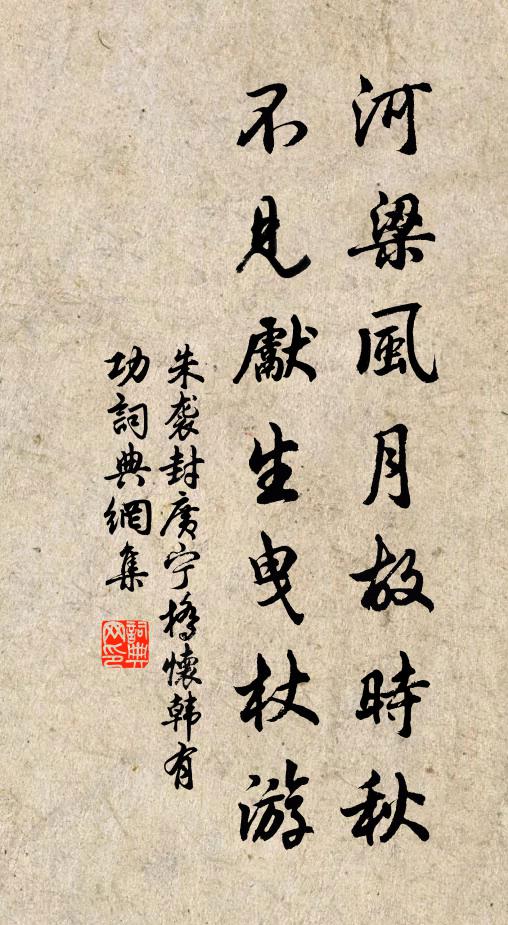 河梁風月故時秋
不見獻生曳杖游
朱袭封廣宁橋懷韩有
功詞典網集
詞典
网印